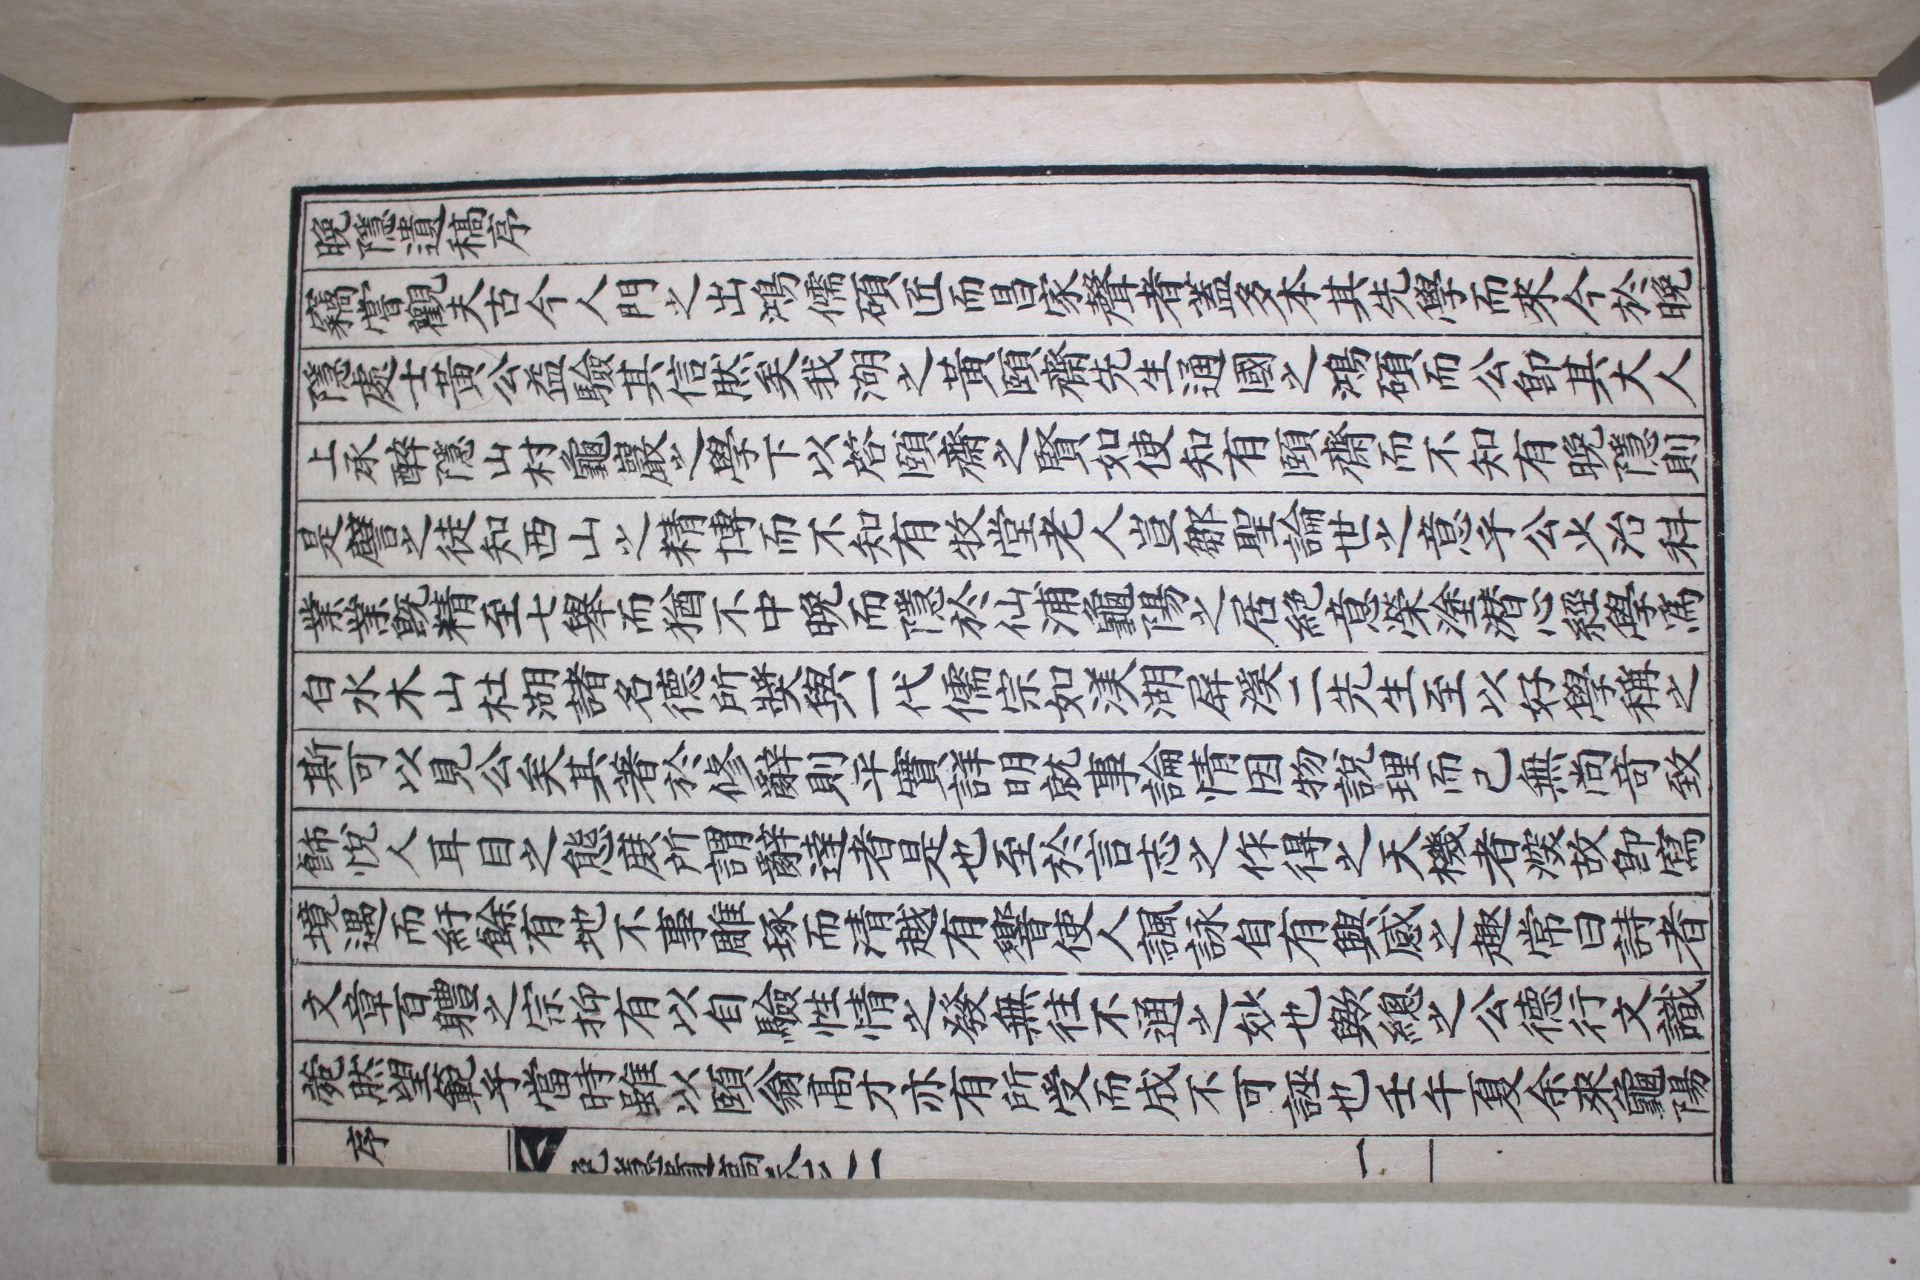 晩隱遺稿序
竊嘗觀夫古今人門之出鴻儒碩匠而昌家聲者盖多本其先學而來今於晩
隱處士黃公益驗其信然矣我湖之黃頤齋先生通國之鴻碩而公卽其大人
上承醉隱山村龜巖之學下以啓頤齋之賢如使知有頤齋而不知有晩隱則
是譬之徒知西山之精博而不知有牧堂老人豈鄒聖論世之意乎公少治科
業業旣精至七擧而猶不中晩而隱於仙浦龜陽之居絶意榮塗潛心經學爲
白水木山杜湖諸名德所奬與一代儒宗如渼湖屛溪二先生至以好學稱之
斯可以見公矣其著於修辭則平實詳明就事論情因物說理而已無尙奇致
飾悅人耳目之態度所謂辭達者是也至於言志之作得之天機者深故卽寫
境遇而紆餘有地不事雕琢而淸越有響使人諷詠自有興感之趣常曰詩者
文章百體之宗抑有以自驗性情之發無往不通之妙也歟總之公德行文識
菀然望範乎當時雖以頤翁高才亦有所受而成不可誣也壬午夏余來龜陽
序
一